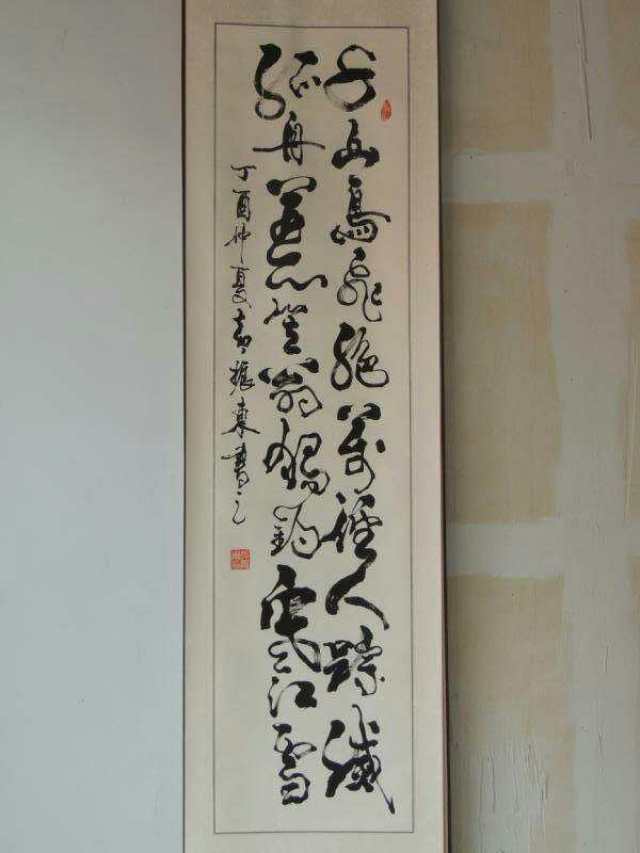 千山鳥飛絕萬徑人蹤滅
孤舟蓑笠翁獨釣寒江雪
丁酉仲夏振東書之